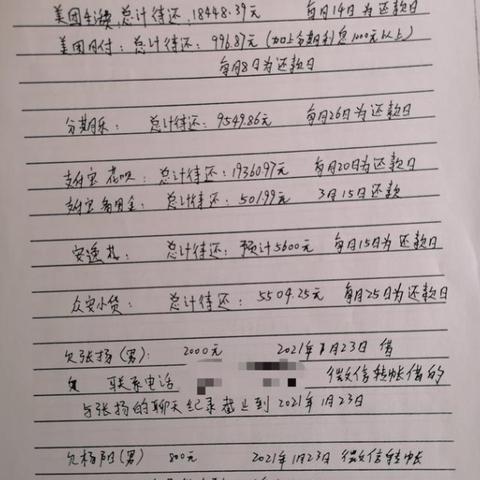 美团生活费,总计待还,18448.39元 每月14日为还款日
美团月付:总计待还:996.87元(加上分期利息1000元以上)
每月8日为还款日
分期乐:总计待还:9549.86元 每月26日为还款日
支付宝花呗:总计待还:19360.97元 每月20日为还款日
支付宝备用金:总计待还:501.99元 3月15日还款
安逸花:总计待还:预计5600元 每月15日为还款日
众安小贷:总计待还:5504.25元 每月25日为还款日
欠张扬(男):2000元 2021年1月23日 借
联系电话 微信转帐借的
与张扬的聊天纪录截止到2021年1月23日
欠杨阳(男)800元 2021年1月23日 微信转帐